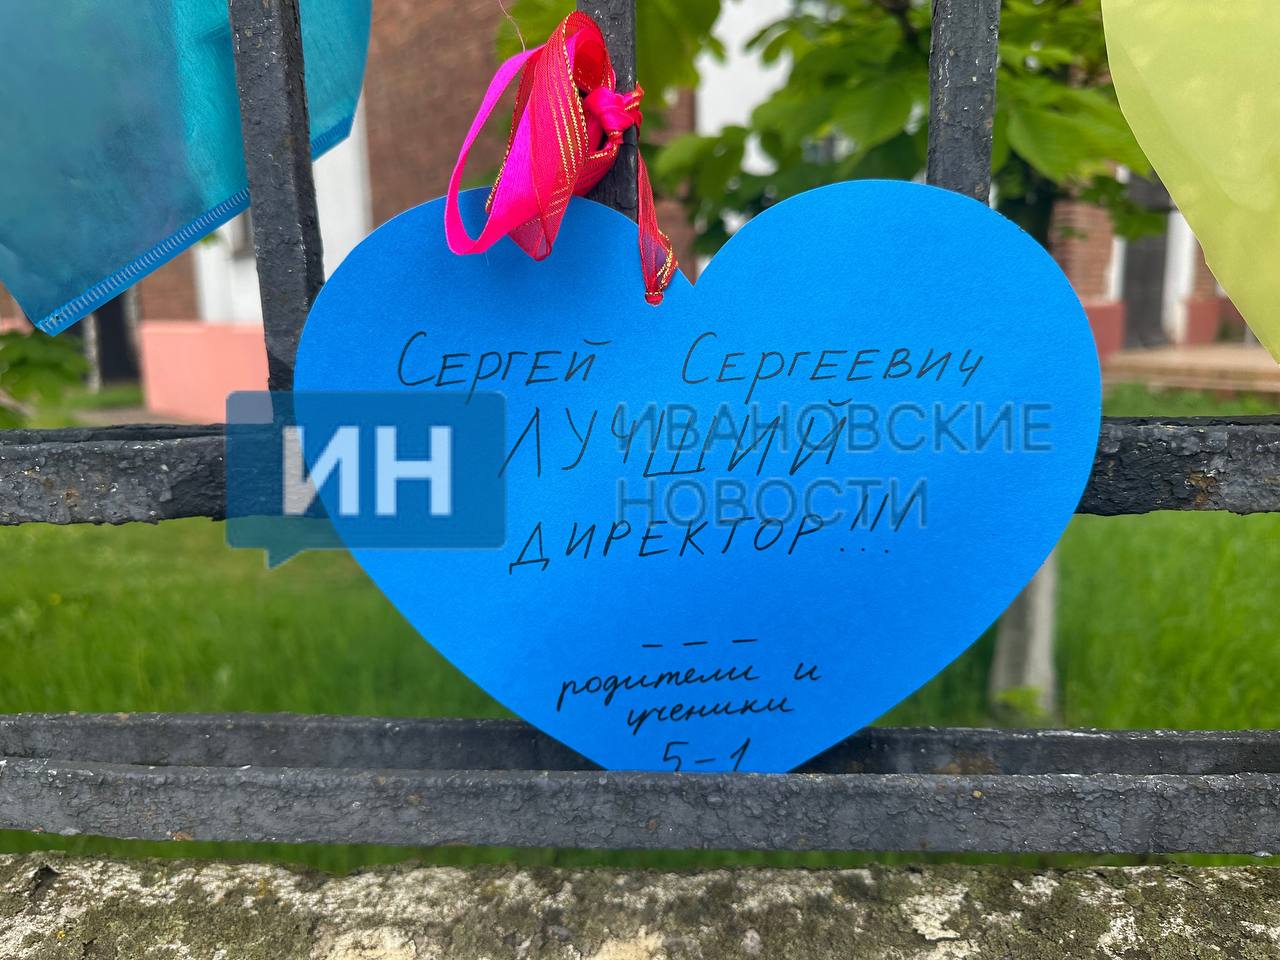 Сергей Сергеевич
ЛУЧШИЙ
ДИРЕКТОР!!!
– – –
родители и
ученики
5–1
ИН
ИВАНОВСКИЕ
НОВОСТИ